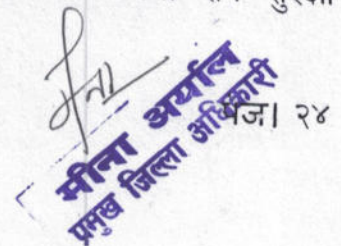 मीना
मीना अर्याल
प्रमुख जिल्ला अधिकारी
पेज। २४